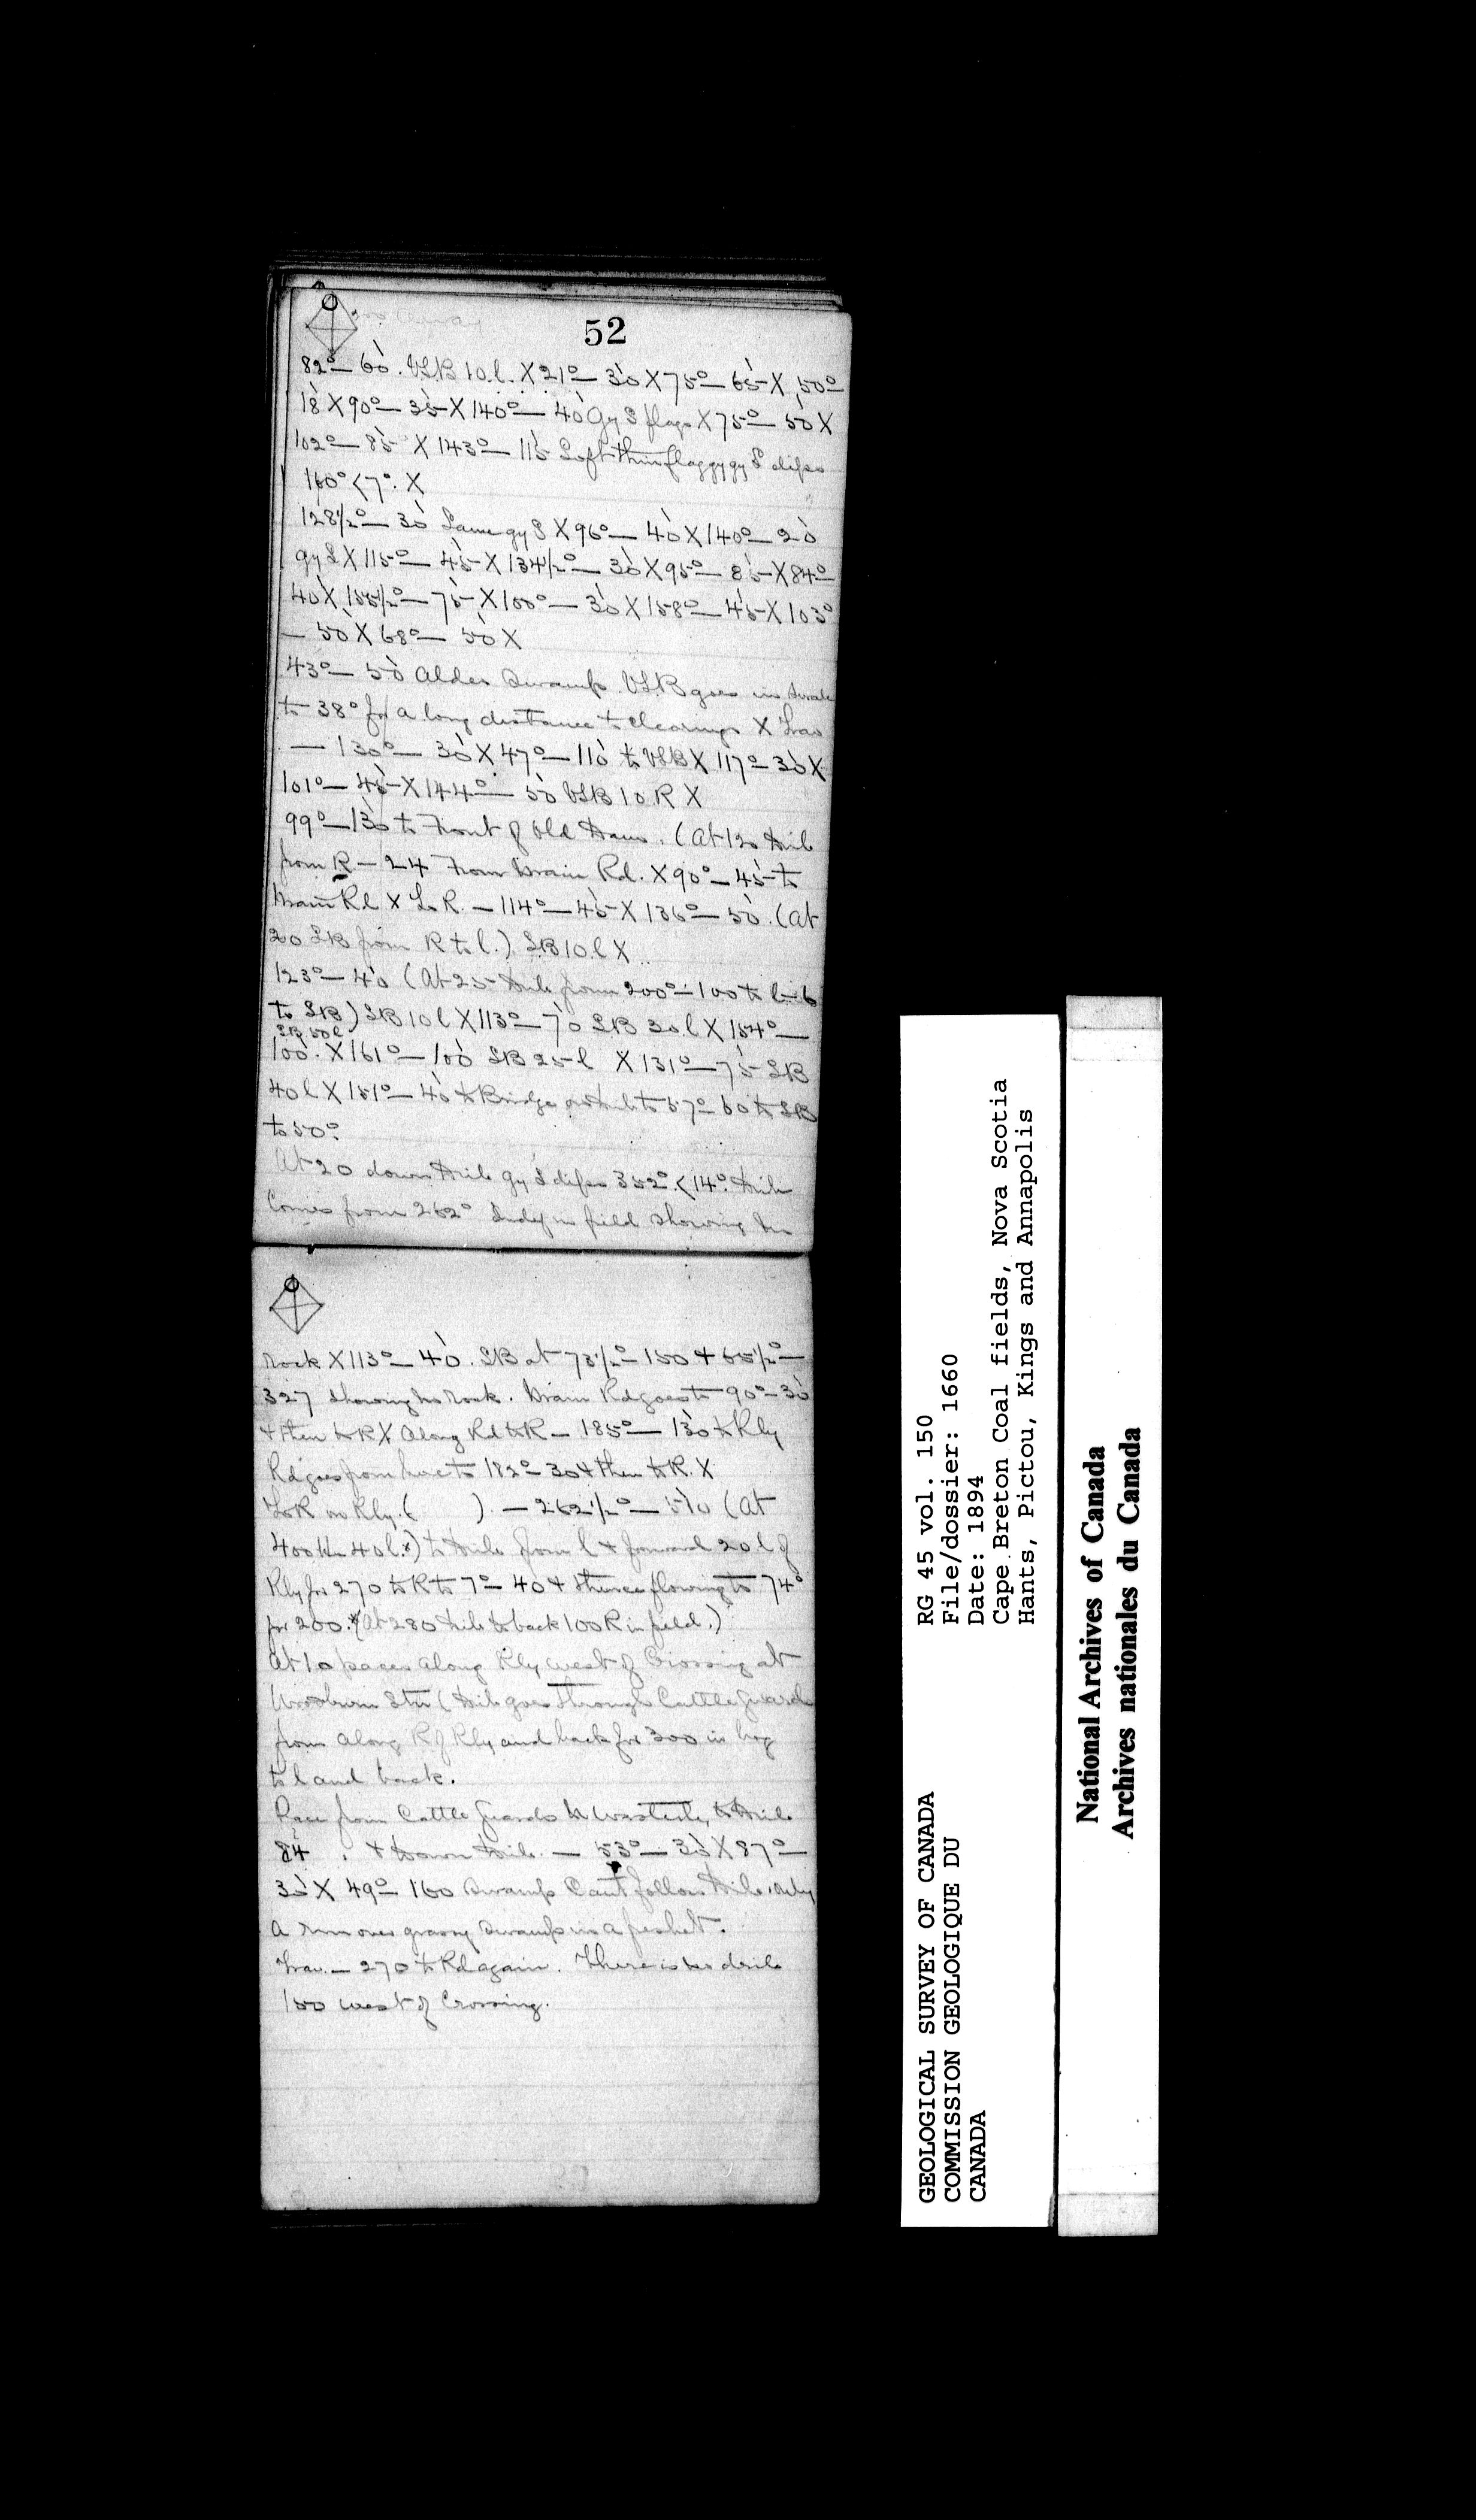 52
82° — 60. VSB 10.l. X 21° — 30 X 75° — 65 X 50°
18 X 90° — 35 X 140° — 40 Gy S flags X 75° — 50 X
102° — 85 X 143° — 115 Soft thin flaggy gy S dips
160° < 7°. X
128 1/2° — 30 Same gy S X 96° — 40 X 140° — 20
gy S X 115° — 45 X 134 1/2° — 30 X 95° — 85 X 84°
40 X 155 1/2° — 75 X 100° — 30 X 158° — 45 X 103°
— 50 X 68° — 50 X
43° — 50 Alder Swamp. VSB goes in swale
to 38° for a long distance to clearings X Trav
— 130° — 30 X 47° — 110 to VSB X 117° — 30 X
101° — 45 X 144° — 50 VSB 10 R X
99° — 130 to Front of Old Dam. (At 120
from R — 24 From Main Rd. X 90° — 45 to
Main Rd X R. — 114° — 45 X 136° — 50. (At
20 SB from R to l.) SB 10 l X
123° — 40 (At 25 from 200° — 100 to
to SB) SB 10 l X 113° — 70 SB 30 l X 154° —
SB 50 l
100. X 161° — 100 SB 25 l X 131° — 75 SB
40 l X 151° — 40 to Bridge to 57° — 60 to SB
to 50°.
At 20 down gy S dips 352° < 14°.
Comes from 262° in field showing no
rock X 113° — 40. SB at 73 1/2° — 150 + 65 1/2° —
327 showing no rock. Main Rd goes to 90° — 30
+ then to R X Along Rd to R — 185° — 130 to Rly
Rd goes from here to 182° — 30 + then to R. X
on Rly. ( ) — 262 1/2° — 510 (At
400 40 l.*) to from l + forward 20 l of
Rly for 270 to R to 7° — 40 + thence flowing to 74°
for 200.* (At 280 to back 100 R in field.)
At 10 paces along Rly west of Crossing at
Woodburn Stn ( goes through Cattle Guard
from along R of Rly and back for 300 in bog
to l and back.
Pace from Cattle Guards N Westerly, to
84. + Down — 53° — 35 X 87° —
35 X 49° — 160 Swamp Can't follow only
a run over grassy swamp in a freshet.
Trav. — 270 to Rd again. There is no
150 west of Crossing.
GEOLOGICAL SURVEY OF CANADA
COMMISSION GEOLOGIQUE DU
CANADA
RG 45 vol. 150
File/dossier: 1660
Date: 1894
Cape Breton Coal fields, Nova Scotia
Hants, Pictou, Kings and Annapolis
National Archives of Canada
Archives nationales du Canada